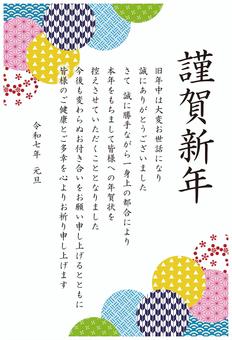 謹賀新年
旧年中は大変お世話になり
誠にありがとうございました
さて 誠に勝手ながら一身上の都合により
本年をもちまして皆様への年賀状を
控えさせていただくこととなりました
今後も変わらぬお付き合いをお願い申し上げるとともに
皆様のご健康とご多幸を心よりお祈り申し上げます
令和七年 元旦